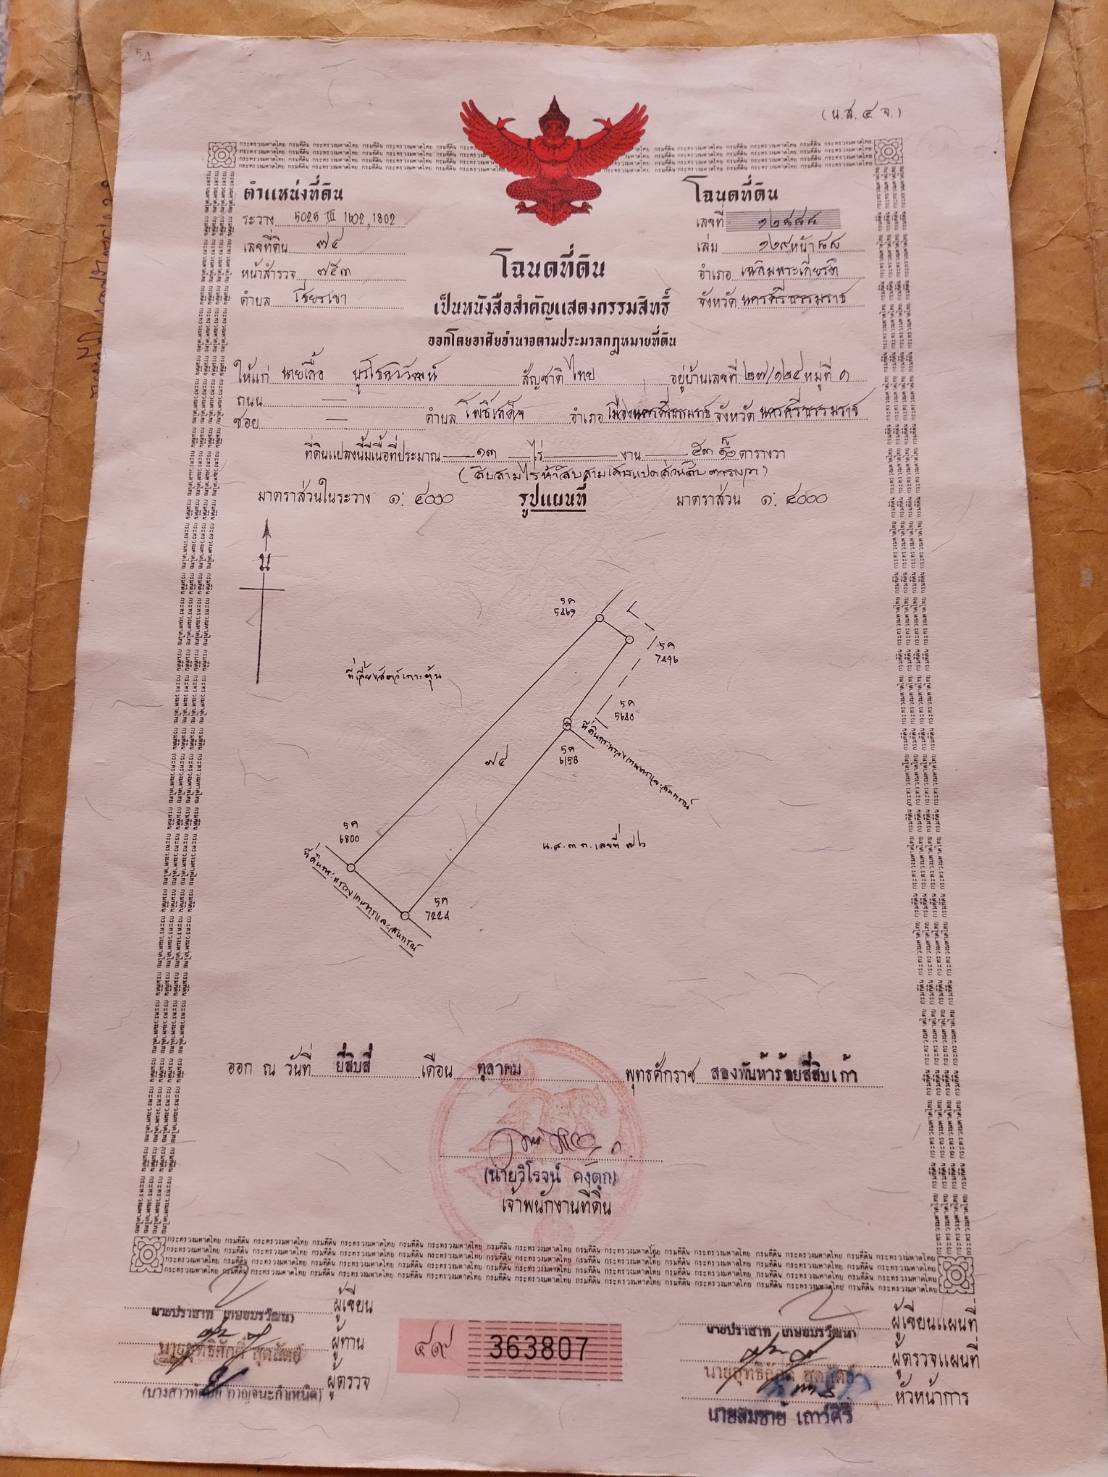 (น.ส.๔ จ.)
ตำแหน่งที่ดิน
ระวาง 5025 III 1602,1802
เลขที่ดิน ๗๔
หน้าสำรวจ ๗๕๓
ตำบล เชียรเขา
โฉนดที่ดิน
เลขที่ ๑๒๘๘๘
เล่ม ๑๒๙ หน้า ๘๘
อำเภอ เฉลิมพระเกียรติ
จังหวัด นครศรีธรรมราช
โฉนดที่ดิน
เป็นหนังสือสำคัญแสดงกรรมสิทธิ์
ออกโดยอาศัยอำนาจตามประมวลกฎหมายที่ดิน
ให้แก่ นายเสื้อ สัญชาติ ไทย อยู่บ้านเลขที่ ๒๗/๑๒๔ หมู่ที่ ๑
ถนน —
ซอย — ตำบล โพธิ์เสด็จ อำเภอ เมืองนครศรีธรรมราช จังหวัด นครศรีธรรมราช
ที่ดินแปลงนี้มีเนื้อที่ประมาณ ๑๓ ไร่ งาน ๕๓ ตารางวา
มาตราส่วนในระวาง ๑: ๔๐๐๐ รูปแผนที่ มาตราส่วน ๑: ๔๐๐๐
น
รค
5469
รค
7496
ที่เลี้ยงสัตว์เกาะตุ้น
รค
5680
๗๔
รค
6158
รค
6800
น.ส.๓ ก. เลขที่ ๗๖
รค
7224
ออก ณ วันที่ ยี่สิบสี่ เดือน ตุลาคม พุทธศักราช สองพันห้าร้อยสี่สิบเก้า
(นายวิโรจน์ คงดุก)
เจ้าพนักงานที่ดิน
นายปราสาท เกษอมรวัฒนา ผู้เขียน
นายสุทธิศักดิ์ ผู้ทาน
ผู้ตรวจ
๔๙ 363807
นายปราสาท เกษอมรวัฒนา ผู้เขียนแผนที่
นายสุทธิศักดิ์ ผู้ตรวจแผนที่
หัวหน้าการ
นายสมชาย ถาวรศิริ